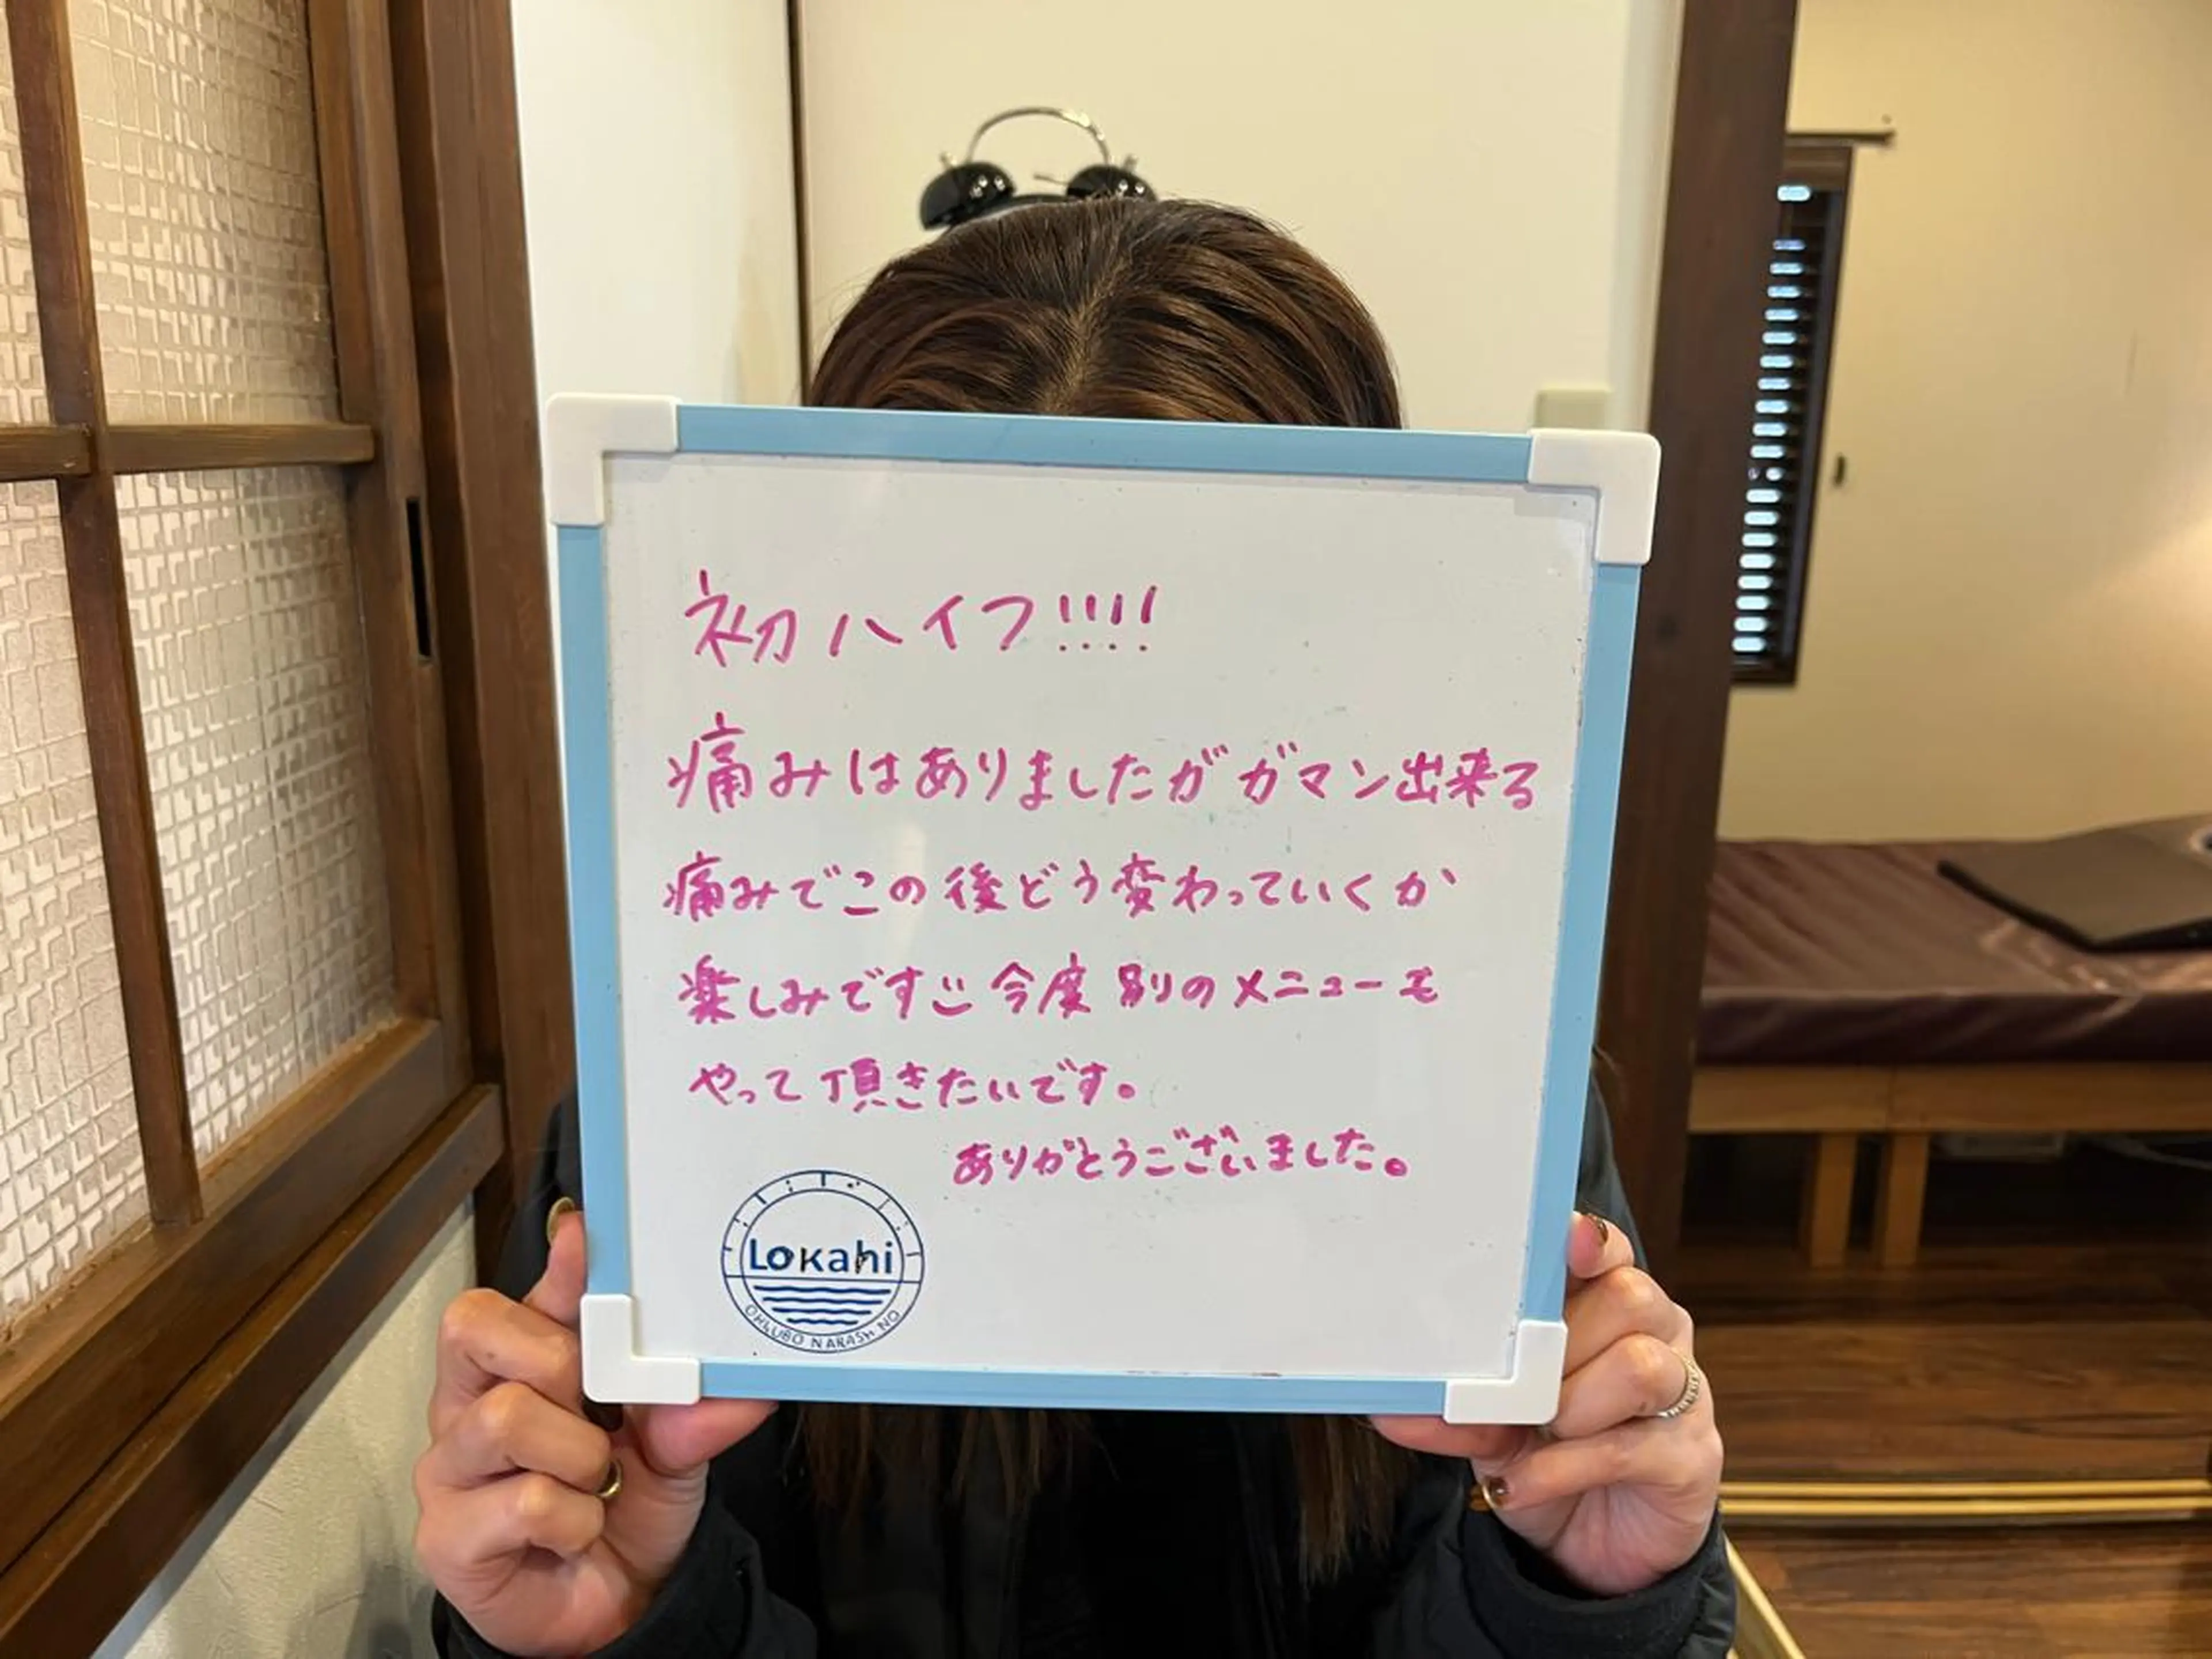 初ハイフ!!!!
痛みはありましたがガマン出来る
痛みでこの後どう変わっていくか
楽しみです 今度別のメニューも
やって頂きたいです。
ありがとうございました。
Lokahi
OHKUBO NARASHINO